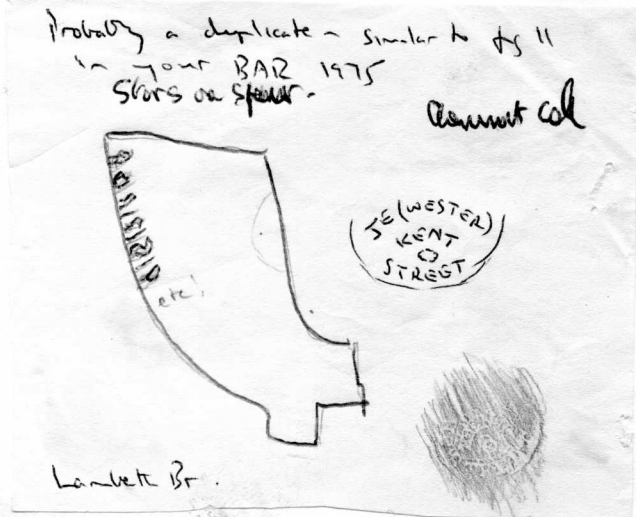 Probably a duplicate - similar to fig 11
in your BAR 1975
Stars on spur.
coll
JE(WESTER)
KENT
STREET
etc!
Lambeth Br.